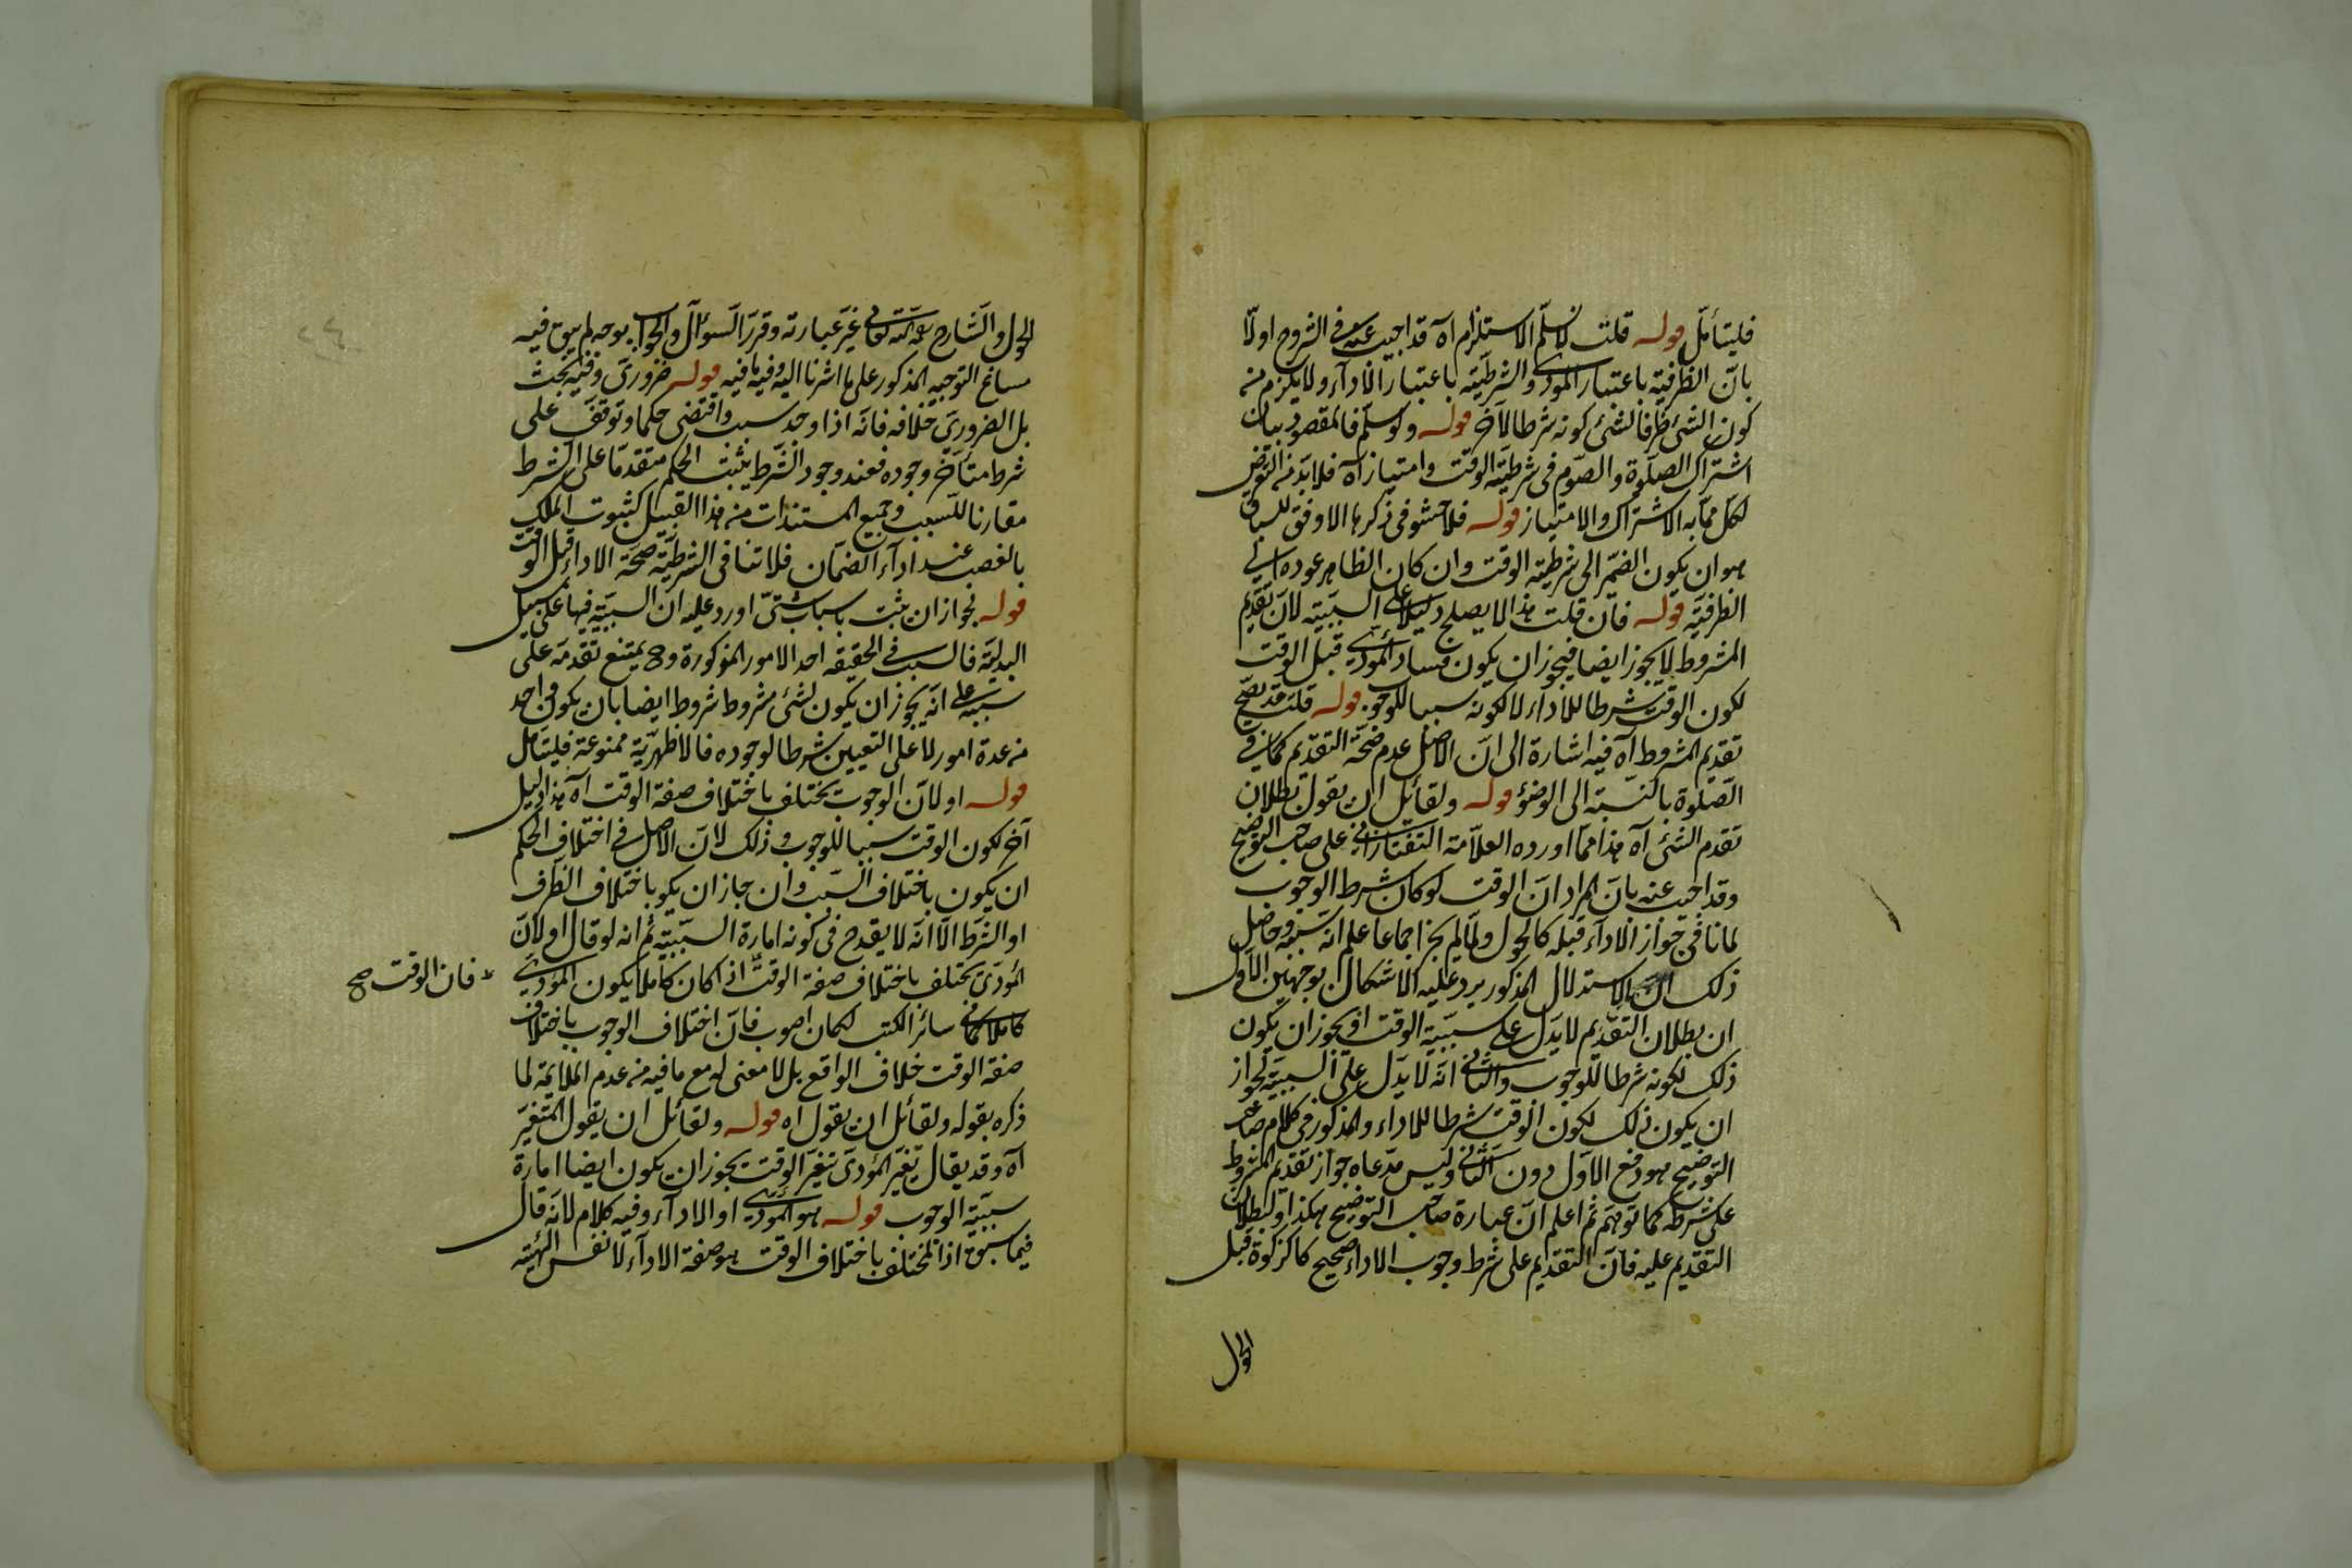 فليتأمل قوله قلت لا نسلم الاستلزام اه قد اجيب عنه في الشروح اولا
بان الظرفية باعتبار المؤدى والشرطية باعتبار الاداء ولا يلزم من
كون الشئ ظرفا لشئ كونه شرطا لآخر قوله ولو سلم فالمقصود بيان
اشتراك الصلوة والصوم فى شرطية الوقت وامتيازه آه فلا بد من التعرض
لكل مما به الاشتراك والامتياز قوله فلا حشو فى ذكرها الاوفق للسياق
هو ان يكون الضمير الى شرطية الوقت وان كان الظاهر عوده الى
الظرفية قوله فان قلت هذا لا يصلح دليلا على السببية لان تقديم
المشروط لا يجوز ايضا فيجوز ان يكون فساد المؤدى قبل الوقت
لكون الوقت شرطا للاداء لا لكونه سببا للوجوب قوله قلت قد يصح
تقديم المشروط آه فيه اشارة الى ان الاصل عدم صحة التقديم كما فى
الصلوة بالنسبة الى الوضوء قوله ولقائل ان يقول بطلان
تقدم الشئ آه هذا مما اورده العلامة التفتازانى على صاحب التوضيح
وقد اجيب عنه بان المراد ان الوقت لو كان شرط الوجوب
لما نافى جواز الاداء قبله كالحول ولما لم يجز اجماعا علم انه سببه وحاصل
ذلك ان الاستدلال المذكور يرد عليه الاشكال بوجهين الاول
ان بطلان التقديم لا يدل على سببية الوقت اذ يجوز ان يكون
ذلك لكونه شرطا للوجوب والثانى انه لا يدل على السببية لجواز
ان يكون ذلك لكون الوقت شرطا للاداء والمذكور فى كلام صاحب
التوضيح هو دفع الاول دون الثانى وليس مدعاه جواز تقديم المشروط
على شرطه كما توهم ثم اعلم ان عبارة صاحب التوضيح هكذا ولبطلان
التقديم عليه فان التقديم على شرط وجوب الاداء صحيح كالزكوة قبل
الحول
الحول والشارح رحمه الله تعالى غير عبارته وقرر السؤال والجواب بوجه لم يبق فيه
مساغ التوجيه المذكور على ما اشرنا اليه وفيه ما فيه قوله ضرورى وفيه بحث
بل الضرورى خلافه فانه اذا وجد سبب واقتضى حكما وتوقف على
شرط متأخر وجوده فعند وجود الشرط يثبت الحكم متقدما على الشرط
مقارنا للسبب وجميع المستندات من هذا القبيل كثبوت الملك
بالغصب عند اداء الضمان فلا تنافى الشرطية صحة الاداء قبل الوقت
قوله لجواز ان يثبت باسباب شتى اورد عليه ان السببية فيها على سبيل
البدلية فالسبب فى الحقيقة احد الامور المذكورة وح يمتنع تقدمه على
سببه على انه يجوز ان يكون لشئ مشروط شروط ايضا بان يكون واحد
من عدة امور لا على التعيين شرطا لوجوده فالاظهرية ممنوعة فليتأمل
قوله او لان الوجوب يختلف باختلاف صفة الوقت آه هذا دليل
آخر لكون الوقت سببا للوجوب وذلك لان الاصل فى اختلاف الحكم
ان يكون باختلاف السبب وان جاز ان يكون باختلاف الظرف
او الشرط الا انه لا يقدح فى كونه امارة السببية ثم انه لو قال او لان
المؤدى يختلف باختلاف صفة الوقت اذا كان كاملا يكون المؤدى
فان الوقت صح
كاملا كما فى سائر الكتب لكان اصوب فان اختلاف الوجوب باختلاف
صفة الوقت خلاف الواقع بل لا معنى له مع ما فيه من عدم الملايمة لما
ذكره بقوله ولقائل ان يقول اه قوله ولقائل ان يقول المتغير
آه وقد يقال تغير المؤدى بتغير الوقت يجوز ان يكون ايضا امارة
سببية الوجوب قوله هو المؤدى او الاداء وفيه كلام لانه قال
فيما سبق اذ المختلف باختلاف الوقت هو صفة الاداء لا نفس الهيئة